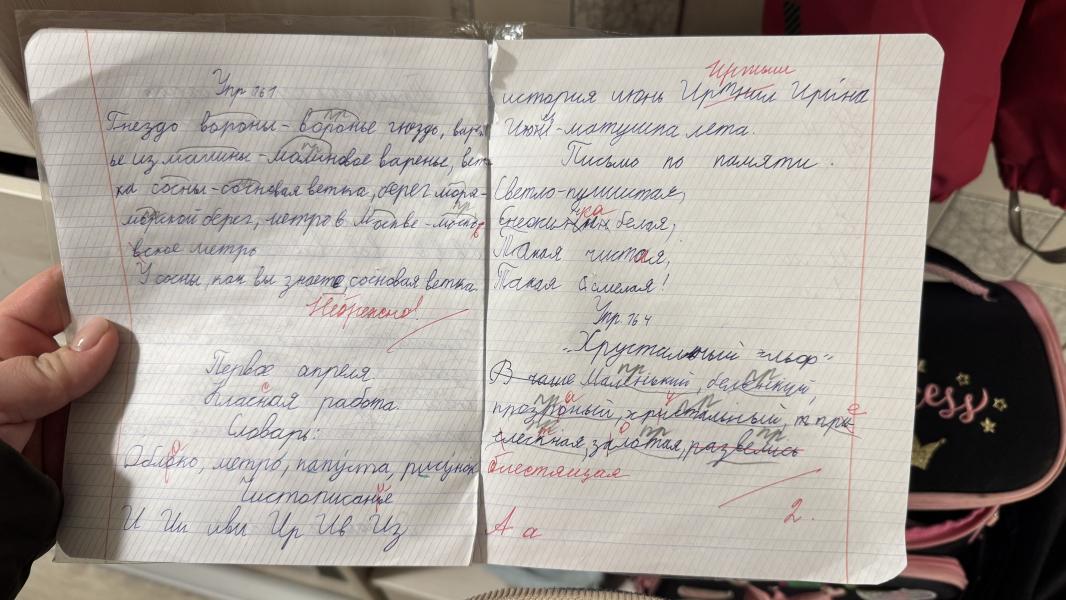 Упр 161
Гнездо вороны - воронье гнездо, варе
ье из малины - малиновое варенье, вет
ка сосны - сосновая ветка, берег моря -
морской берег, метро в Москве - москов
вское метро
У сосны, как вы знаете, сосновая ветка.
Небрежно!
Первое апреля
Класная работа.
с
Словарь:
Облоко, метро, капуста, рисунок
а
Чистописание
И Ии иви Ир Ив Из
Иртыш
история июнь Ирина
Июнь - матушка лета.
Письмо по памяти.
Светло-пушистая,
Снежинка белая,
Такая чистая,
Такая смелая!
Упр. 164
„Хрустальный эльф"
В чаше маленький, беленький,
прозроный, хрустальный, при
золотая, развелись
блестящая
2.
А а
ess